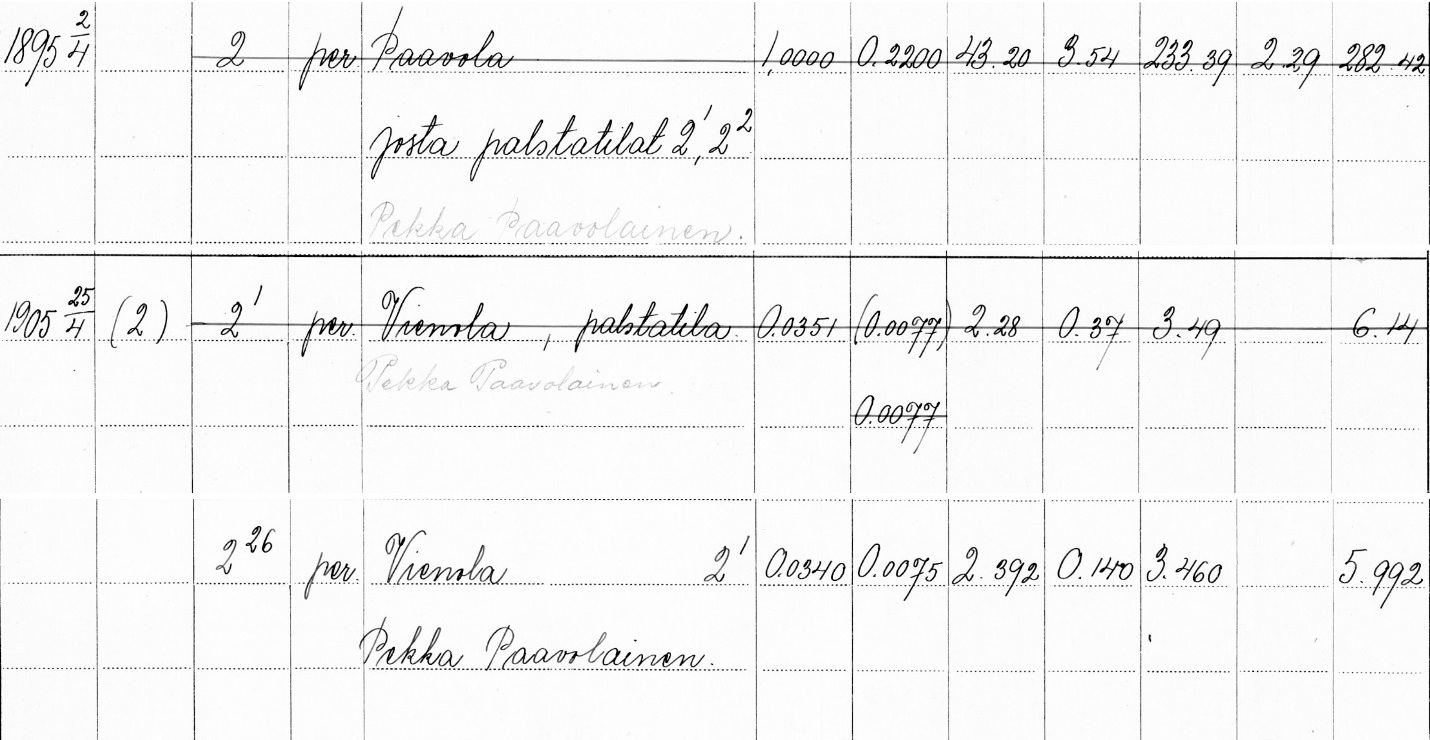 1895 2/4 2 per Paavola 1,0000 0.2200 43.20 3.54 233.39 2.29 282.42
josta palstatilat 2¹, 2²
Pekka Paavolainen.
1905 25/4 (2) 2¹ per. Vienola, palstatila. 0.0351 (0.0077) 2.28 0.37 3.49 6.14
Pekka Paavolainen
0.0077
2²⁶ per. Vienola 2¹ 0.0340 0.0075 2.392 0.140 3.460 5.992
Pekka Paavolainen.